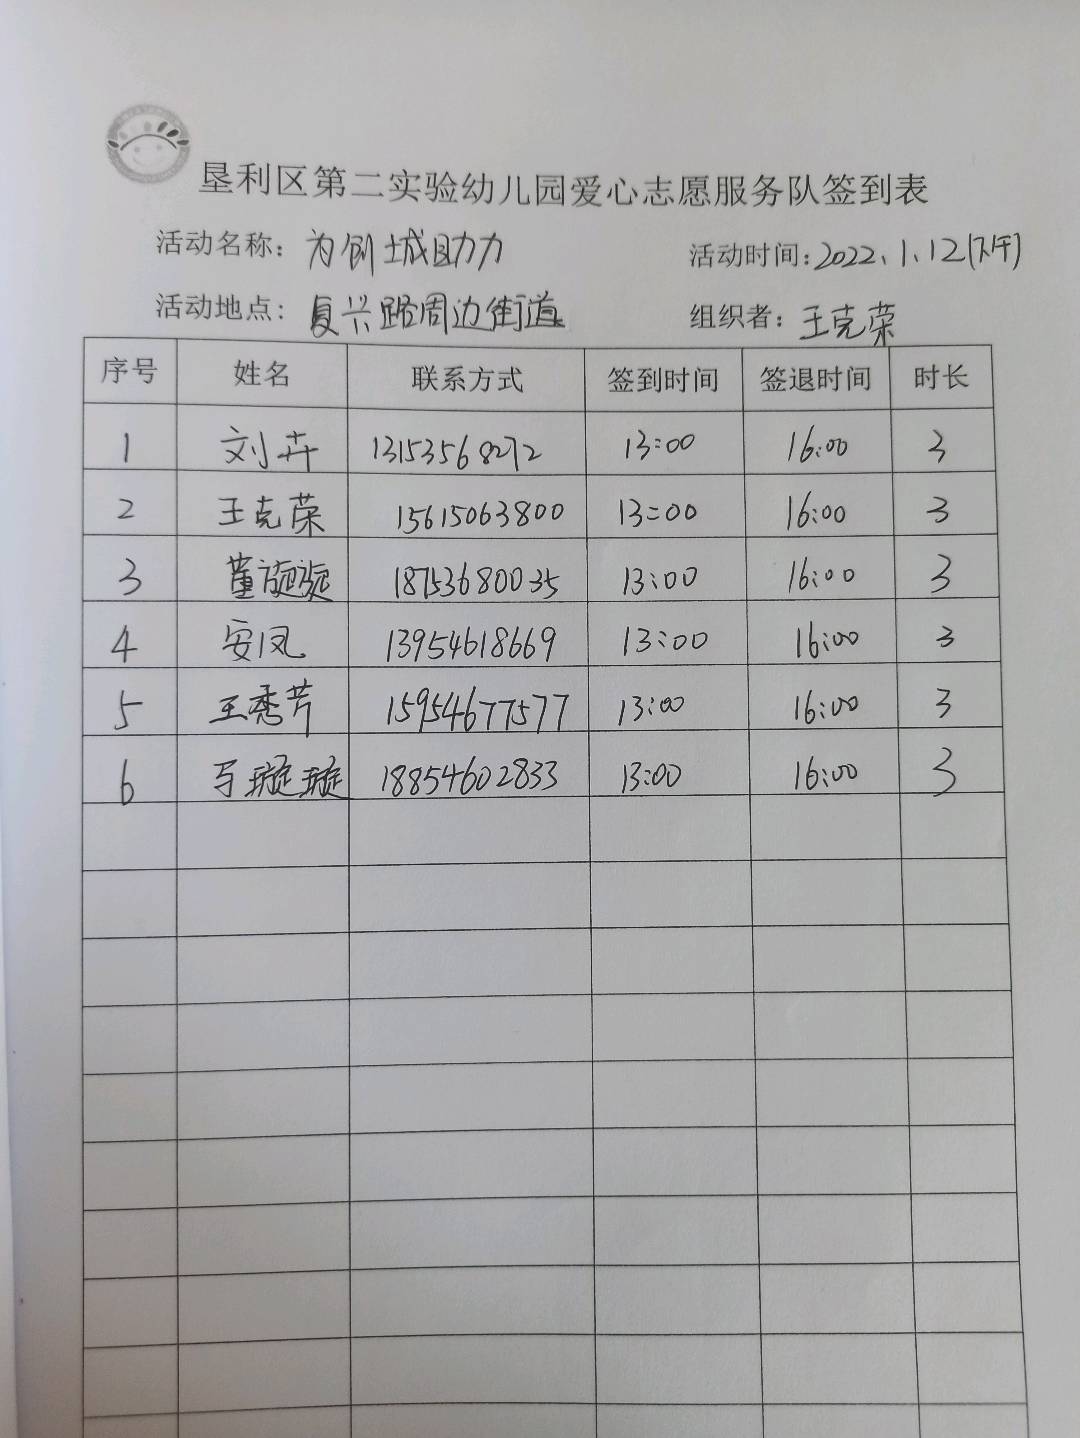 垦利区第二实验幼儿园爱心志愿服务队签到表
活动名称：为创城助力 活动时间：2022、1、12(下午)
活动地点：复兴路周边街道 组织者：王克荣
序号 姓名 联系方式 签到时间 签退时间 时长
1 刘卉 13153568272 13:00 16:00 3
2 王克荣 15615063800 13:00 16:00 3
3 董旋旋 18753680035 13:00 16:00 3
4 安凤 13954618669 13:00 16:00 3
5 王秀芹 15954677577 13:00 16:00 3
6 璇璇 18854602833 13:00 16:00 3